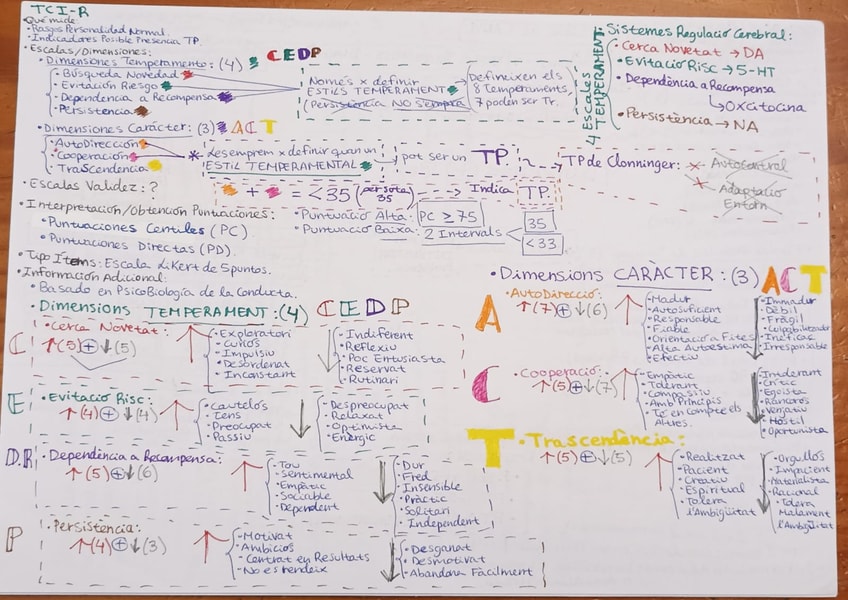 TCI-R
Qué mide
• Rasgos Personalidad Normal.
• Indicadores Posible Presencia TP.
• Escalas/Dimensiones:
• Dimensiones Temperamento: (4) CEDP
• Búsqueda Novedad
• Evitación Riesgo
• Dependencia a Recompensa
• Persistencia
Només x definir
ESTILS TEMPERAMENT
(Persistència NO Sempre)
Defineixen els
8 Temperaments,
7 poden ser Tr.
4 Escales
TEMPERAMENT
• Sistemes Regulació Cerebral:
• Cerca Novetat → DA
• Evitació Risc → 5-HT
• Dependència a Recompensa
↳ Oxcitocina
• Persistència → NA
• Dimensiones Carácter: (3) ACT
• AutoDirección
• Cooperación
• TraScendencia
* Les emprem x definir quan un
ESTIL TEMPERAMENTAL
pot ser un TP.
TP de Clonninger:
Autocontrol
Adaptació
Entorn
+ = <35 (per sota 35) --> Indica TP.
• Escalas Validez: ?
• Interpretación/Obtención Puntuaciones:
• Puntuaciones Centiles (PC)
• Puntuaciones Directas (PD).
• Puntuació Alta: PC ≥ 75
• Puntuació Baixa: 2 Intervals
35
<33
• Tipo Ítems: Escala Likert de 5 puntos.
• Información Adicional:
• Basado en PsicoBiología de la Conducta.
• Dimensions TEMPERAMENT: (4) CEDP
C
• Cerca Novetat:
↑(5) ⊕ ↓(5)
↑
• Exploratori
• Curiós
• Impulsiu
• Desordenat
• Inconstant
↓
• Indiferent
• Reflexiu
• Poc Entusiasta
• Reservat
• Rutinari
E
• Evitació Risc:
↑(4) ⊕ ↓(4)
↑
• Cautelós
• Tens
• Preocupat
• Passiu
↓
• Despreocupat
• Relaxat
• Optimista
• Enèrgic
D.R
• Dependència a Recompensa:
↑(5) ⊕ ↓(6)
↑
• Tou
• Sentimental
• Empàtic
• Sociable
• Dependent
↓
• Dur
• Fred
• Insensible
• Pràctic
• Solitari
• Independent
P
• Persistencia:
↑(4) ⊕ ↓(3)
↑
• Motivat
• Ambiciós
• Centrat en Resultats
• No es rendeix
↓
• Desganat
• Desmotivat
• Abandona Fàcilment
• Dimensions CARÀCTER: (3) ACT
A
• AutoDirecció:
↑(7) ⊕ ↓(6)
↑
• Madur
• Autosuficient
• Responsable
• Fiable
• Orientació a Fites
• Alta Autoestima
• Efectiu
↓
• Immadur
• Dèbil
• Fràgil
• Culpabilitzador
• Ineficaç
• Irresponsable
C
• Cooperació:
↑(5) ⊕ ↓(7)
↑
• Empàtic
• Tolerant
• Compassiu
• Amb Principis
• Te en Compte els
Altres.
↓
• Intolerant
• Crític
• Egoista
• Rancorós
• Venjatiu
• Hostil
• Oportunista
T
• Trascendència:
↑(5) ⊕ ↓(5)
↑
• Realitzat
• Pacient
• Creatiu
• Espiritual
• Tolera
l'Ambigüitat
↓
• Orgullós
• Impacient
• Materialista
• Racional
• Tolera
Malament
l'Ambigüitat